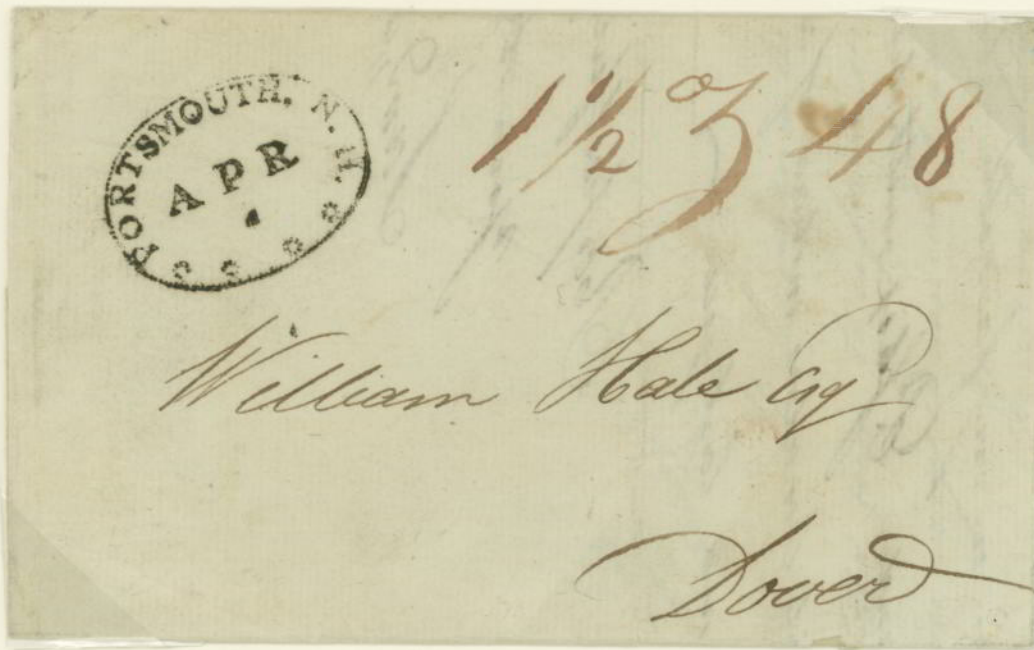 PORTSMOUTH, N. H.
APR
1 1/2 oz 48
William Hale Esq
Dover